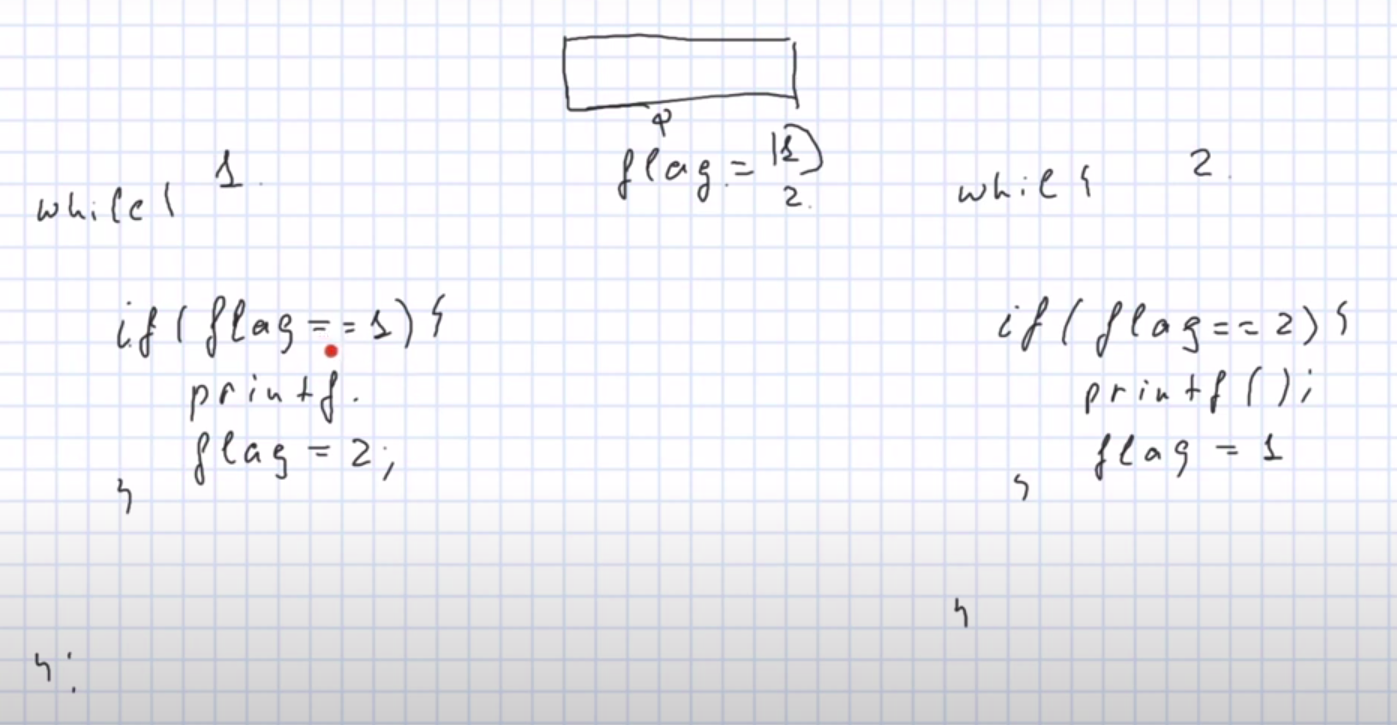 flag = 1
2.
1.
while {
if ( flag == 1) {
printf.
flag = 2;
}
};
2.
whil {
if ( flag == 2) {
printf ( );
flag = 1
}
}